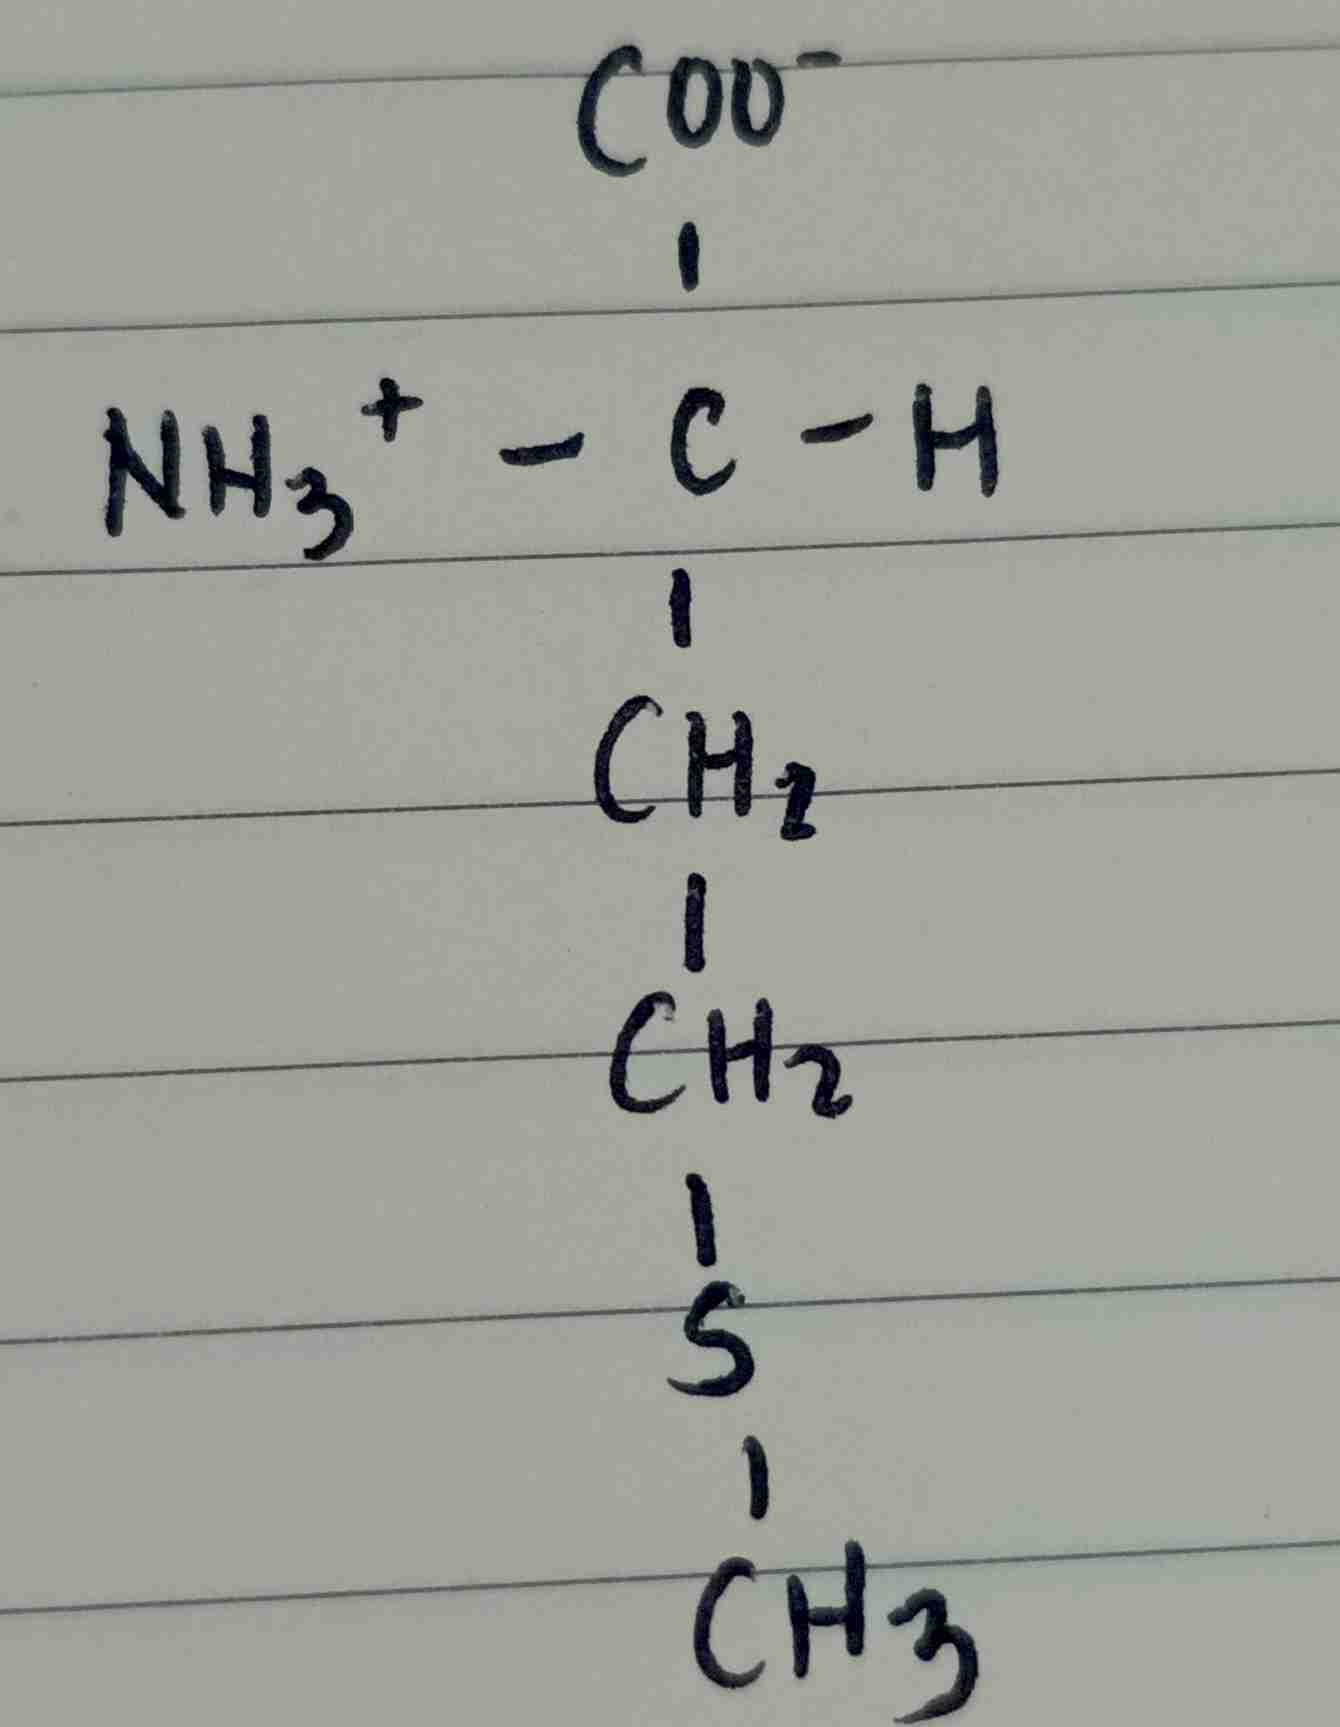 COO⁻
|
NH₃⁺ - C - H
|
CH₂
|
CH₂
|
S
|
CH₃